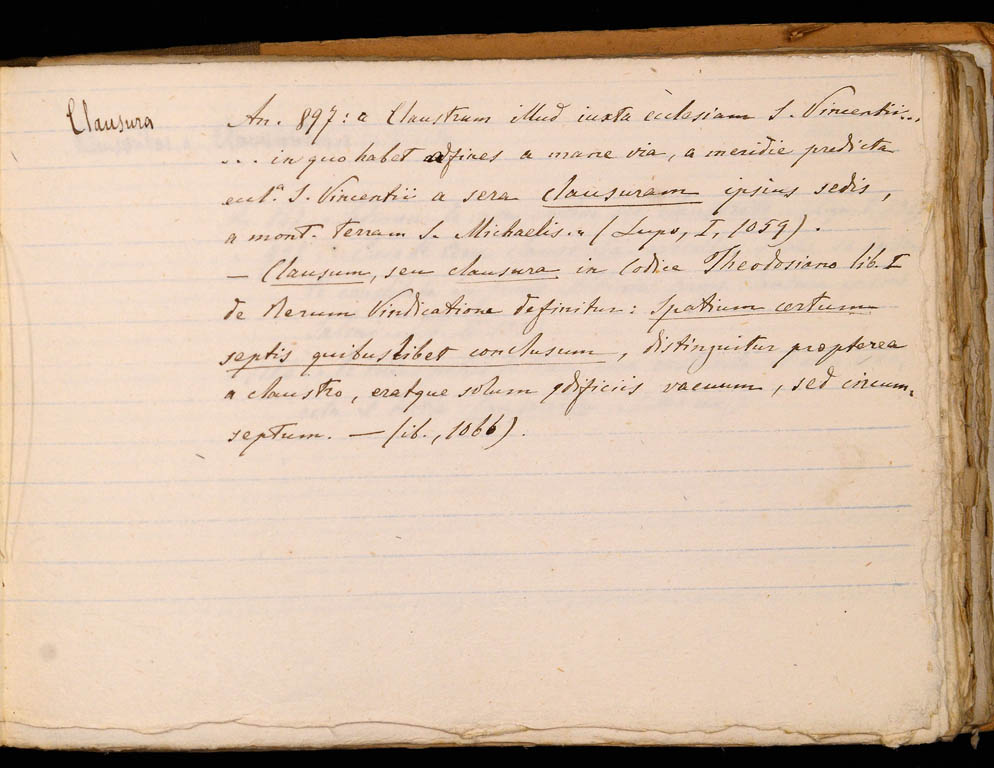 Clausura
An. 897: a Claustrum illud iuxta ecclesiam S. Vincentii...
... in quo habet adfines a mane via, a meridie predicta
eccl.ª S. Vincentii a sera clausuram ipsius sedis,
a mont. terram S. Michaelis.„ (Lupo, I, 1059).
— Clausum, seu clausura in Codice Theodosiano lib. I
de Rerum Vindicatione definitur: Spatium certum
septis quibuslibet conclusum, distinguitur propterea
a claustro, eratque solum ędificiis vacuum, sed circum-
septum. — (ib., 1066).